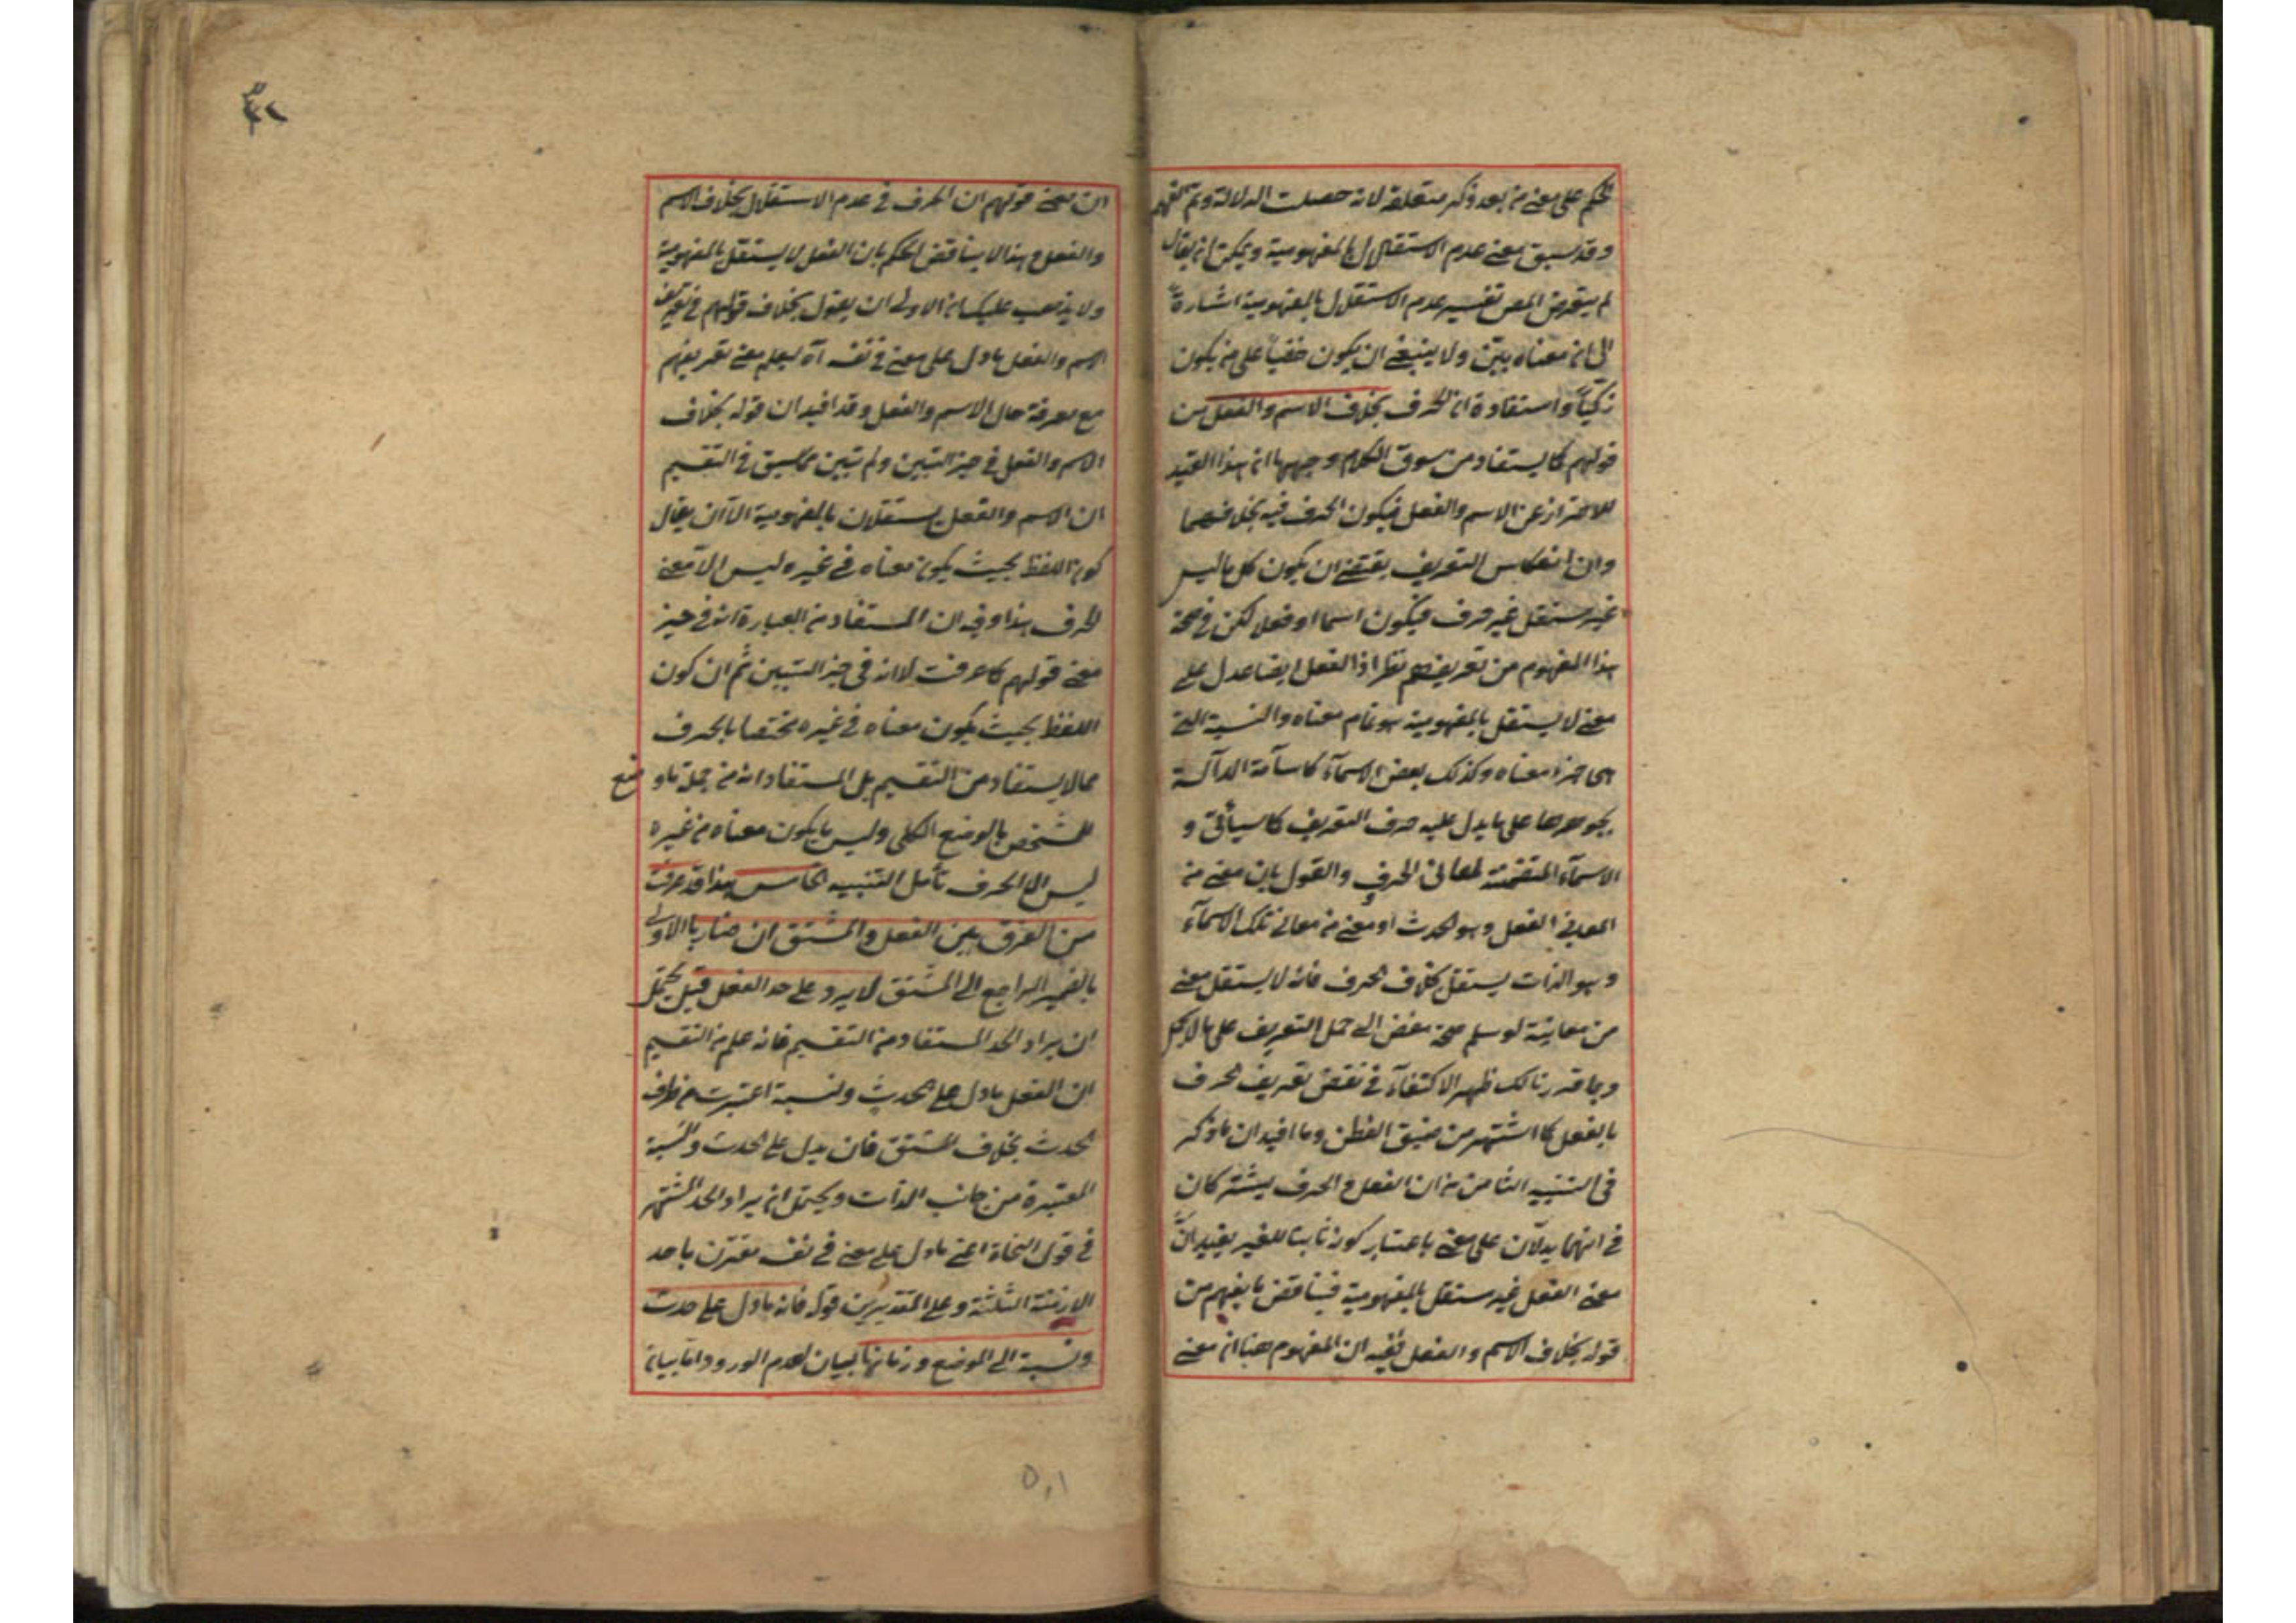 الحكم على معنى من بعد ذكر متعلقه لانه حصلت الدلالة وتم الفهم
وقد سبق معنى عدم الاستقلال بالمفهومية ويمكن ان يقال
لم يتعرض المص تفسير عدم الاستقلال بالمفهومية اشارة
الى ان معناه بيّن ولا ينبغي ان يكون خفيا على من يكون
زكيّا واستفادة ان الحرف بخلاف الاسم والفعل من
قولهم كما يستفاد من سوق الكلام وجهها ان هذا القيد
للاحتراز عن الاسم والفعل فيكون الحرف فيه بخلافهما
وان انعكاس التعريف يقتضي ان يكون كل ما ليس
غير مستقل غير حرف فيكون اسما او فعلا لكن في صحة
هذا المفهوم من تعريفهم نظر اذا الفعل ايضا يدل على
معنى لا يستقل بالمفهومية هو تمام معناه والنسبة التي
هى جزء معناه وكذلك بعض الاسماء كاسامة الدالة
بجوهرها على ما يدل عليه حرف التعريف كما سيأتي و
الاسماء المتضمنة لمعانى الحرف والقول بان معنى من
المعاني الفعل وهو الحدث او معنى من معاني تلك الاسماء
وهو الذات يستقل بخلاف الحرف فانه لا يستقل معنى
من معانيه لو سلم صحة مفض الى حمل التعريف على ما لا يحمل
وبما قررنا لك ظهر الاكتفاء في نقض تعريف الحرف
بالفعل كما اشتهر من ضيق الفطن وما افيد ان ما ذكر
فى التنبيه الثامن من ان الفعل والحرف يشتركان
في انهما يدلان على معنى باعتبار كونه ثابتا للغير يفيد انّ
معنى الفعل غير مستقل بالمفهومية فيناقض ما يفهم من
قوله بخلاف الاسم والفعل ففيه ان المفهوم هنا ان معنى
٤٢
ان معنى قولهم ان الحرف في عدم الاستقلال بخلاف الاسم
والفعل وهذا لا يناقض الحكم بان الفعل لا يستقل بالمفهومية
ولا يذهب عليك ان الاولى ان يقول بخلاف قولهم في تعريف
الاسم والفعل ما دل على معنى في نفسه آه ليعلم معنى تعريفهم
مع معرفة حال الاسم والفعل وقد افيد ان قوله بخلاف
الاسم والفعل في حيز التبين ولم تبين مما سبق في التقسيم
ان الاسم والفعل يستقلان بالمفهومية الا ان يقال
كون اللفظ بحيث يكون معناه في غيره ليس الا معنى
الحرف هذا وفيه ان المستفاد من العبارة انه في حيز
معنى قولهم كما عرفت لا انه في حيز التبين ثم ان كون
اللفظ بحيث يكون معناه في غيره مختصا بالحرف
مما لا يستفاد من التقسيم بل المستفاد انه من جملة ما وضع
للمشخص بالوضع الكلى وليس ما يكون معناه من غيره
ليس الا الحرف تأمل التنبيه الخامس هذا قد عرفت
من الفرق بين الفعل والمشتق ان ضاربا الاولى
بالضمير الراجع الى المشتق لا يرد على حد الفعل قيل يحتمل
ان يراد الحد المستفاد من التقسيم فانه علم من التقسيم
ان الفعل ما دل على الحدث ونسبة اعتبرت من طرف
الحدث بخلاف المشتق فانه يدل على الحدث والنسبة
المعتبرة من جانب الذات ويحتمل ان يراد الحد المشتهر
في قول النحاة اعني ما دل على معنى في نفسه مقترن باحد
الازمنة الثلثة وعلى التقديرين قوله فانه ما دل على حدث
ونسبة الى الموضع وزمانها لبيان لعدم الورود اما بيان